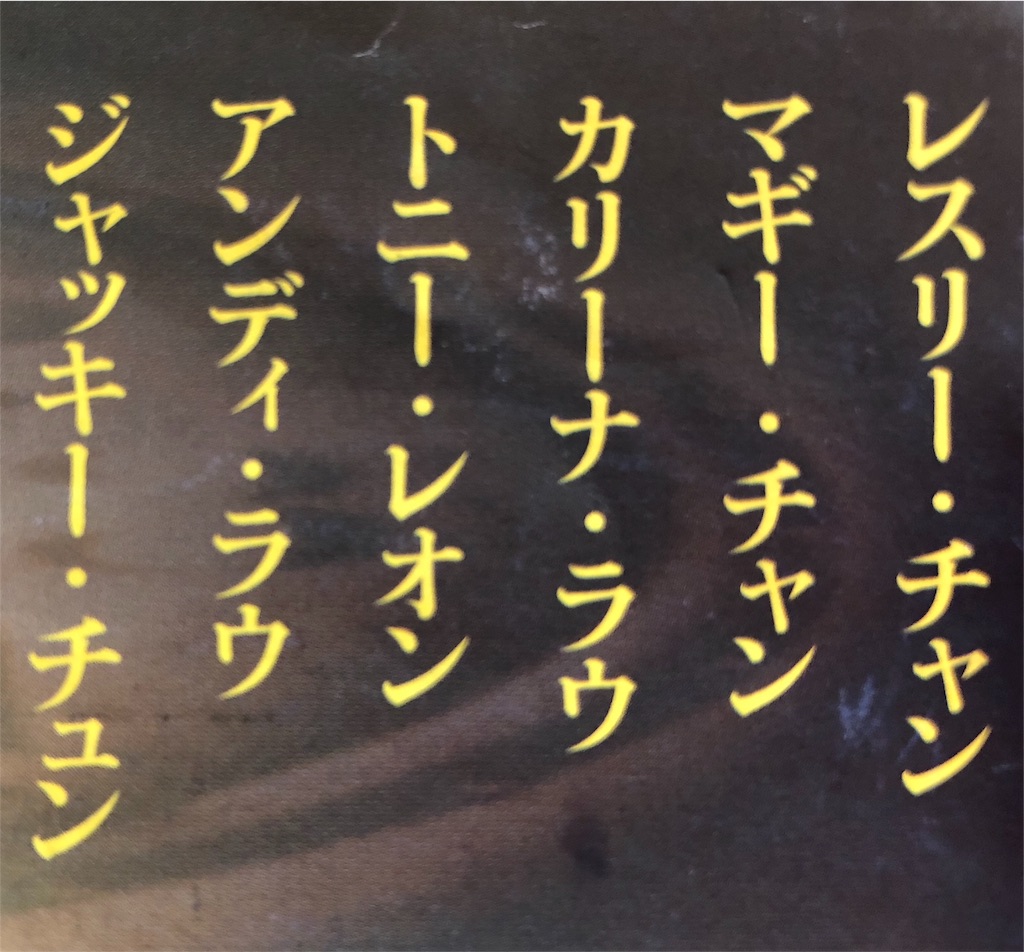 レスリー・チャン
マギー・チャン
カリーナ・ラウ
トニー・レオン
アンディ・ラウ
ジャッキー・チュン